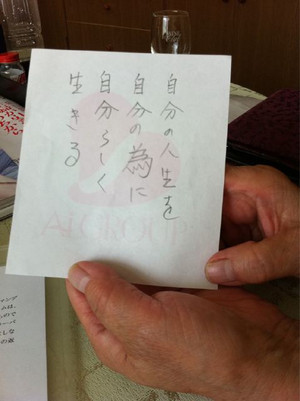 自分の人生を
自分の為に
自分らしく
生きる